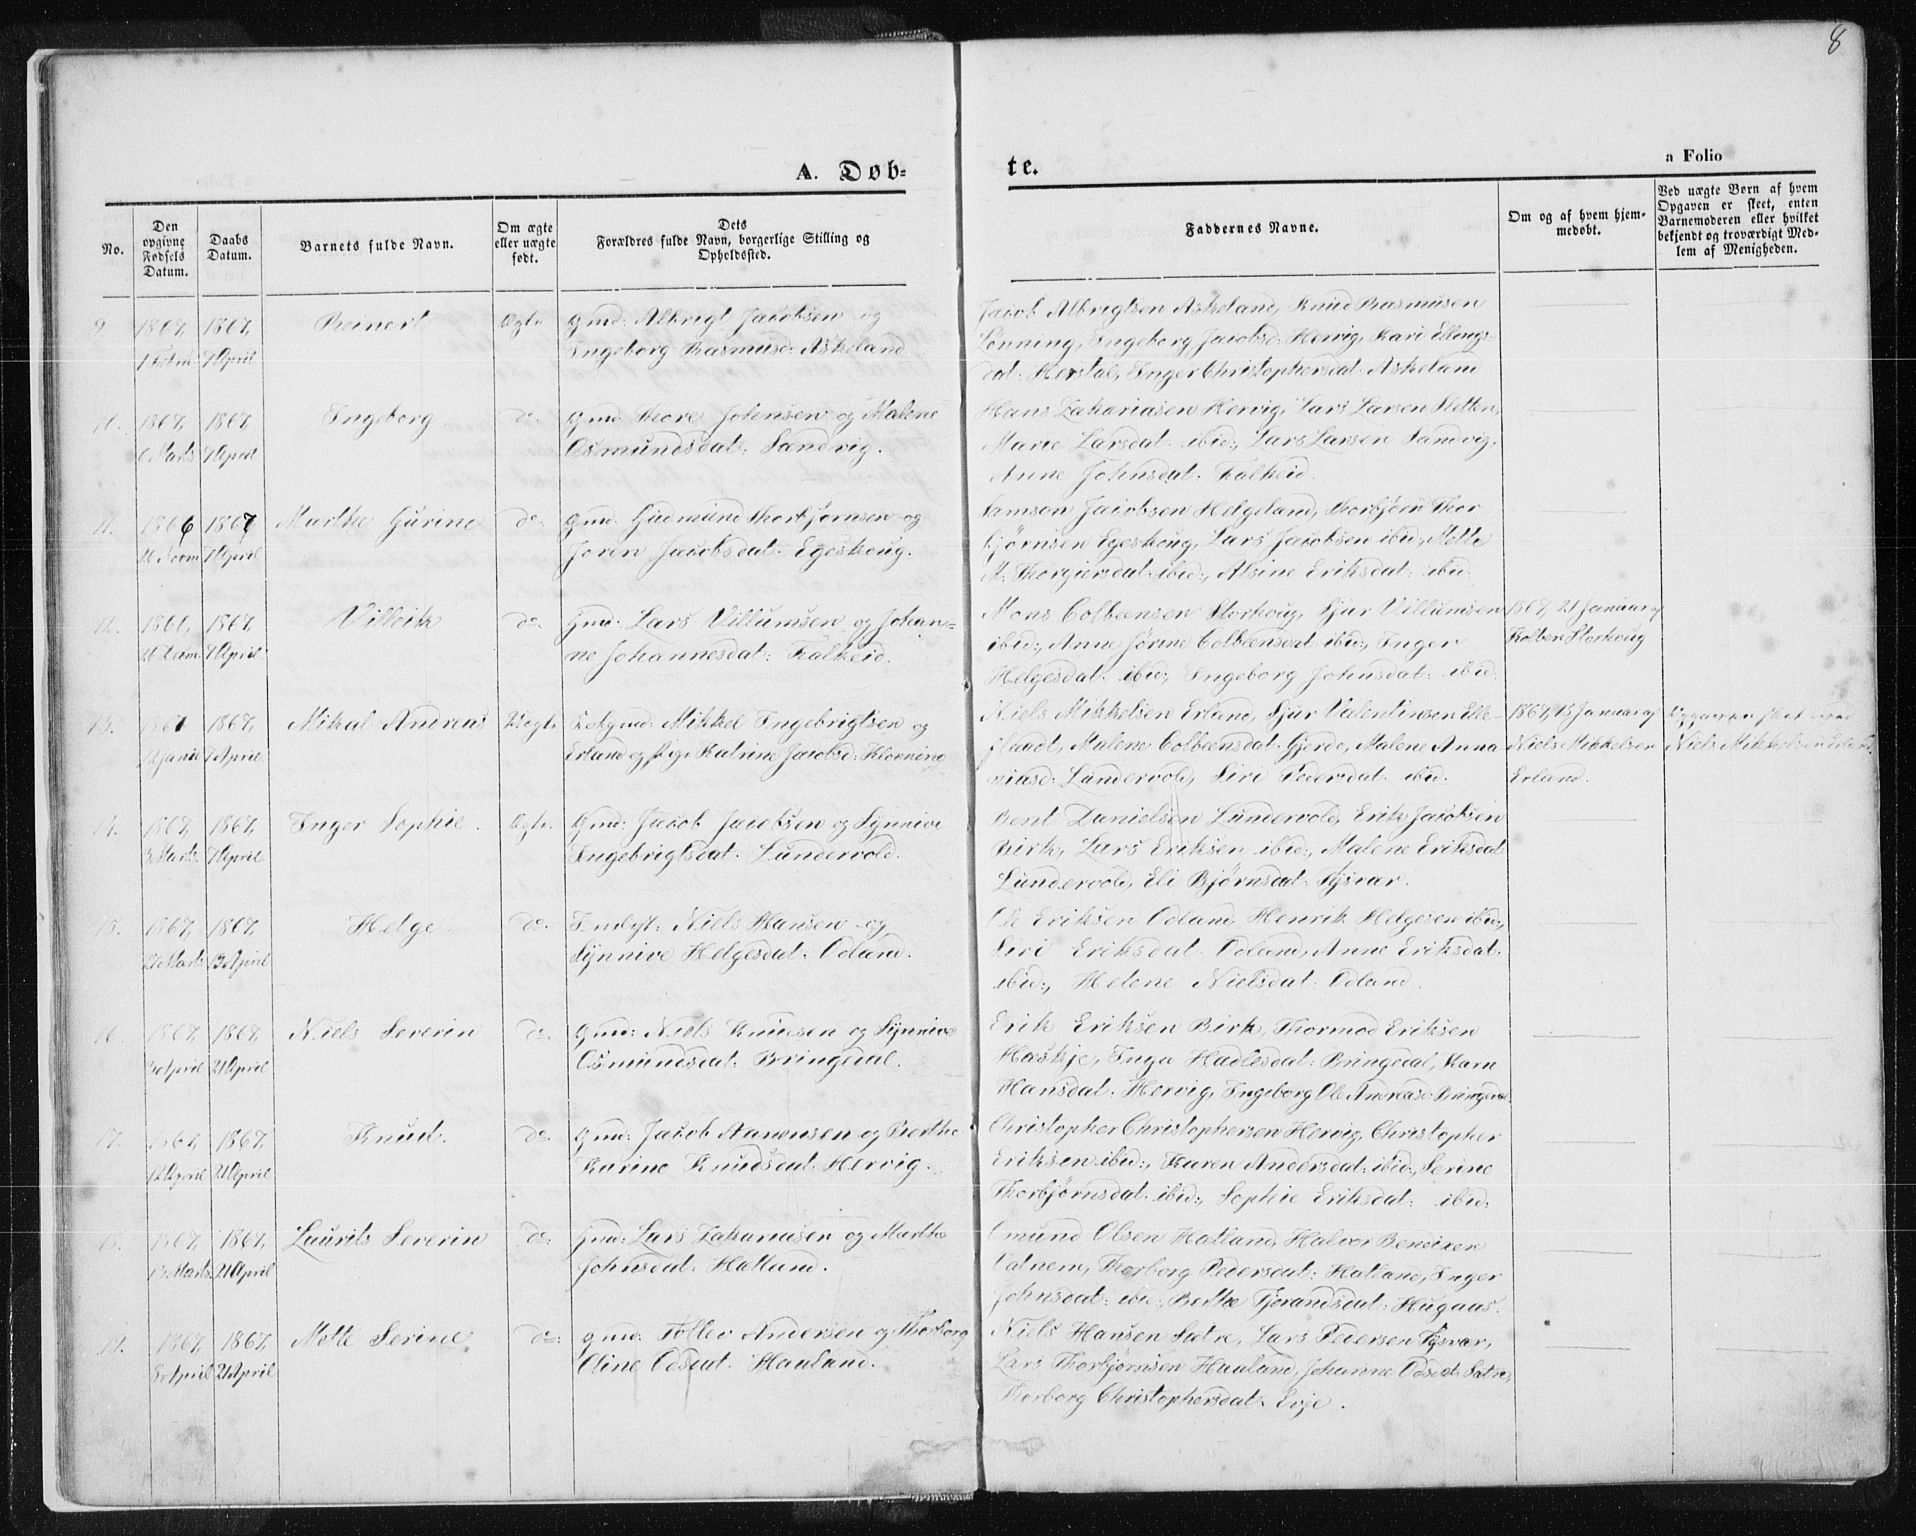 8
A. Døb-
te.
a Folio
No.
Den opgivne Fødsels Datum.
Daabs Datum.
Barnets fulde Navn.
Om ægte eller uægte født.
Dets Forældres fulde Navn, borgerlige Stilling og Opholdssted.
Faddernes Navne.
Om og af hvem hjem-
medøbt.
Ved uægte Børn af hvem
Opgaven er skeet, enten
Barnemoderen eller hvilket
bekjendt og troværdigt Med-
lem af Menigheden.
9. 1867, 1867, Reinert Ægte Gmd: Albrigt Jacobsen og
7 April Ingeborg Rasmusd: Askeland
Jacob Albrigtsen Askeland, Knud Rasmusen
Lønning, Ingeborg Jacobsd: Hervig, Kari Ellings-
dat: Herstal, Inger Christophersdat: Askeland
10. 1867, 1867, Ingeborg do. Gmd: Thore Johnsen og Malene
6 Marts 7 April Osmundsdat: Sandvig.
Hans Zakariasen Hervig, Lars Larsen Sletten,
Marie Larsdat: ibid:, Lars Larsen Sandvig,
Anne Johnsdat: Falkeid.
11. 1866 1867 Marthe Gurine do. Gmd: Gudmund Thorbjørnsen og
7 April Joren Jacobsdat: Egeskoug.
Samson Jacobsen Helgeland, Thorbjørn Thor
bjørnsen Egeskoug, Lars Jacobsen ibid:, Mette
M: Thorgiersdat: ibid:, Alsine Eriksdat: ibid:
12. 1867, Villeik do. Gmd: Lars Villumsen og Johan-
7 April ne Johannesdat: Falkeid.
Mons Colbeensen Storkoug, Sjur Villumsen
ibid:, Anne Jorine Colbeensdat: ibid:, Inger
Helgesdat: ibid:, Ingeborg Johnsdat: ibid:
1867, 21 Januar af
Kolben Storkoug
13. 1867 1867, Mikal Andreas Uægte Mikkel Ingebrigtsen og
7 April Erland og Pige Katrine Jacobsd: Klovning
Niels Mikkelsen Erland, Sjur Valentinsen Elle-
flaadt, Malene Colbeensdat: Gjerde, Malene Anna
niasd: Lundervold, Siri Pedersdat: ibid.
1867, 15 Januar af
Niels Mikkelsen
Erland.
Opgaven skeet ved
Niels Mikkelsen Erland.
14. 1867, 1867, Inger Sophie. Ægte. Gmd: Jacob Jacobsen og Synnive
Marts 7 April Ingebrigtsdat: Lundervold.
Bent Danielsen Lundervold, Erik Jacobsen
Birk, Lars Eriksen ibid:, Malene Eriksdat:
Lundervold, Eli Bjørnsdat: Tysvær.
15. 1867, 1867, Helge. do. Niels Hansen og
27 Marts 13 April Synnive Helgesdat: Odland.
Ole Eriksen Odland, Henrik Helgesen ibid:,
Siri Eriksdat: Odland, Anne Eriksdat:
ibid:, Helene Nielsdat: Odland.
16. 1867, 1867, Niels Severin do. Gmd: Niels Knudsen og Synnive
3 April 21 April Osmundsdat: Bringedal.
Erik Eriksen Birk, Thormod Eriksen
Haskje, Inga Hadlesdat: Bringedal, Karn
Hansdat: Hervig, Ingeborg Ole Andreasd: Bringedal.
17. 1867, 1867, Knud. do. Gmd: Jacob Aanensen og Berthe
12 April 21 April Karine Knudsdat: Hervig.
Christopher Christophersen Hervig, Christopher
Eriksen ibid:, Karen Andersdat: ibid:, Serine
Thorbjørnsdat: ibid:, Sophie Eriksdat: ibid:
18. 1867, 1867, Laurits Severin do. Gmd: Lars Zakariasen og Marthe
13 Marts 21 April Johnsdat: Hatland.
Omund Olsen Hatland, Halvor Bendixen
Vatnem, Thorborg Pedersdat: Hatland, Inger
Johnsdat: ibid:, Berthe Tjorandsdat: Hugaas.
19. 1867, 1867, Mette Serine do: gmd: Tollev Andersen og Thorborg
8 April 21 April Oline Odsdat: Hauland.
Niels Hansen Sætre, Lars Pedersen Tysvær,
Lars Thorbjørnsen Hauland, Johanne Odsdat: Sætre,
Thorborg Christophersdat: Evje.